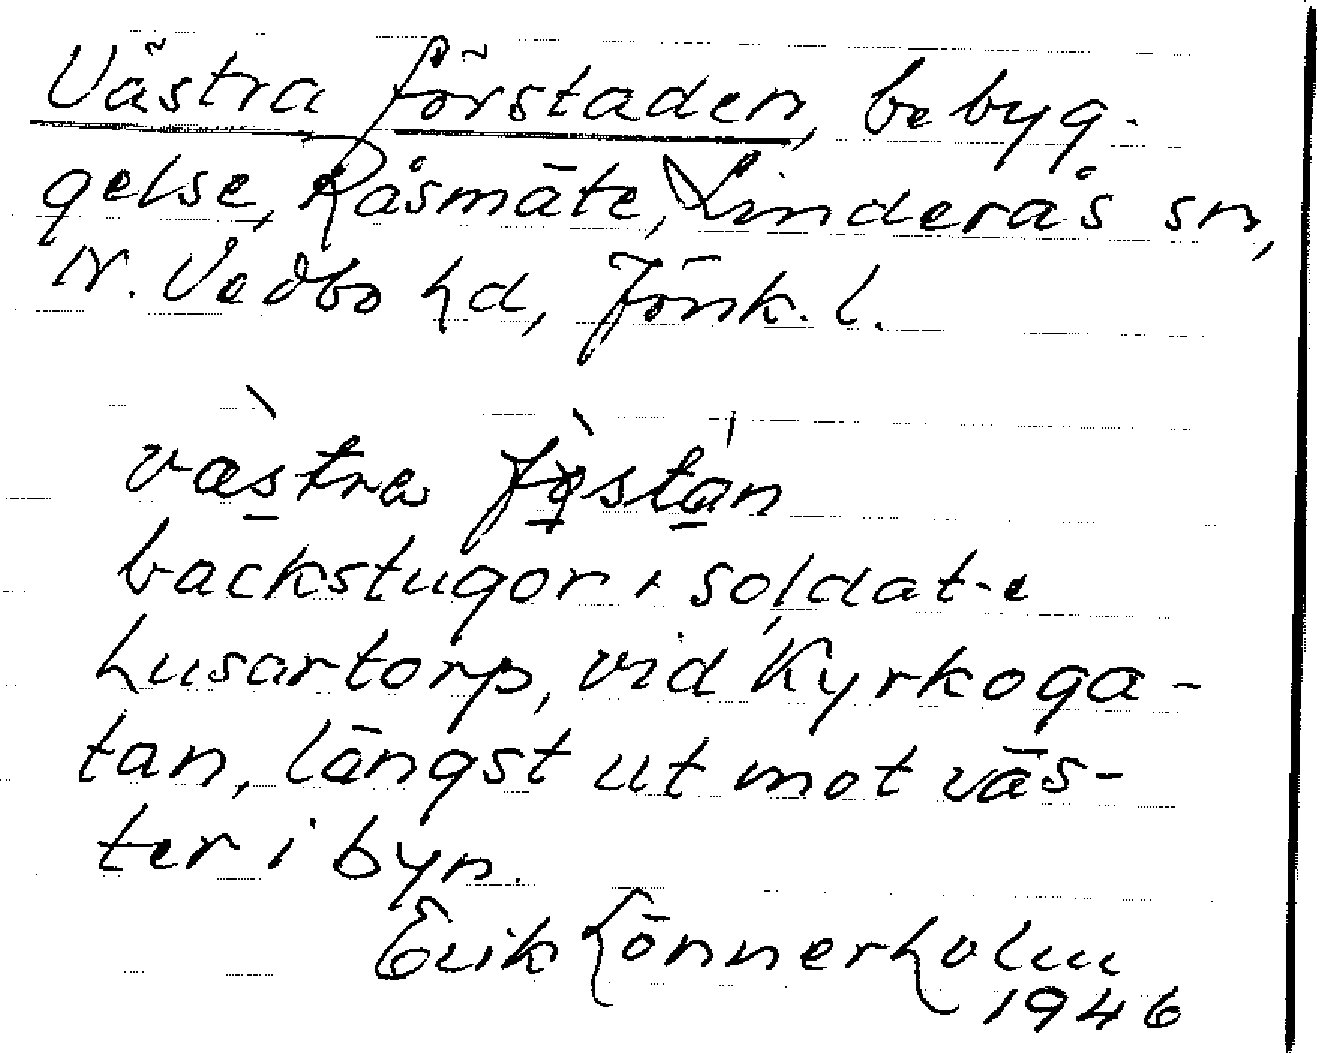 Västra förstaden, bebyg-
gelse, Råsmäte, Linderås sn,
N. Vedbo hd, Jönk. l.
västra fästan
backstugor, soldat- o
husartorp, vid Kyrkoga-
tan, längst ut mot väs-
ter i byn.
Erik Lönnerholm
1946